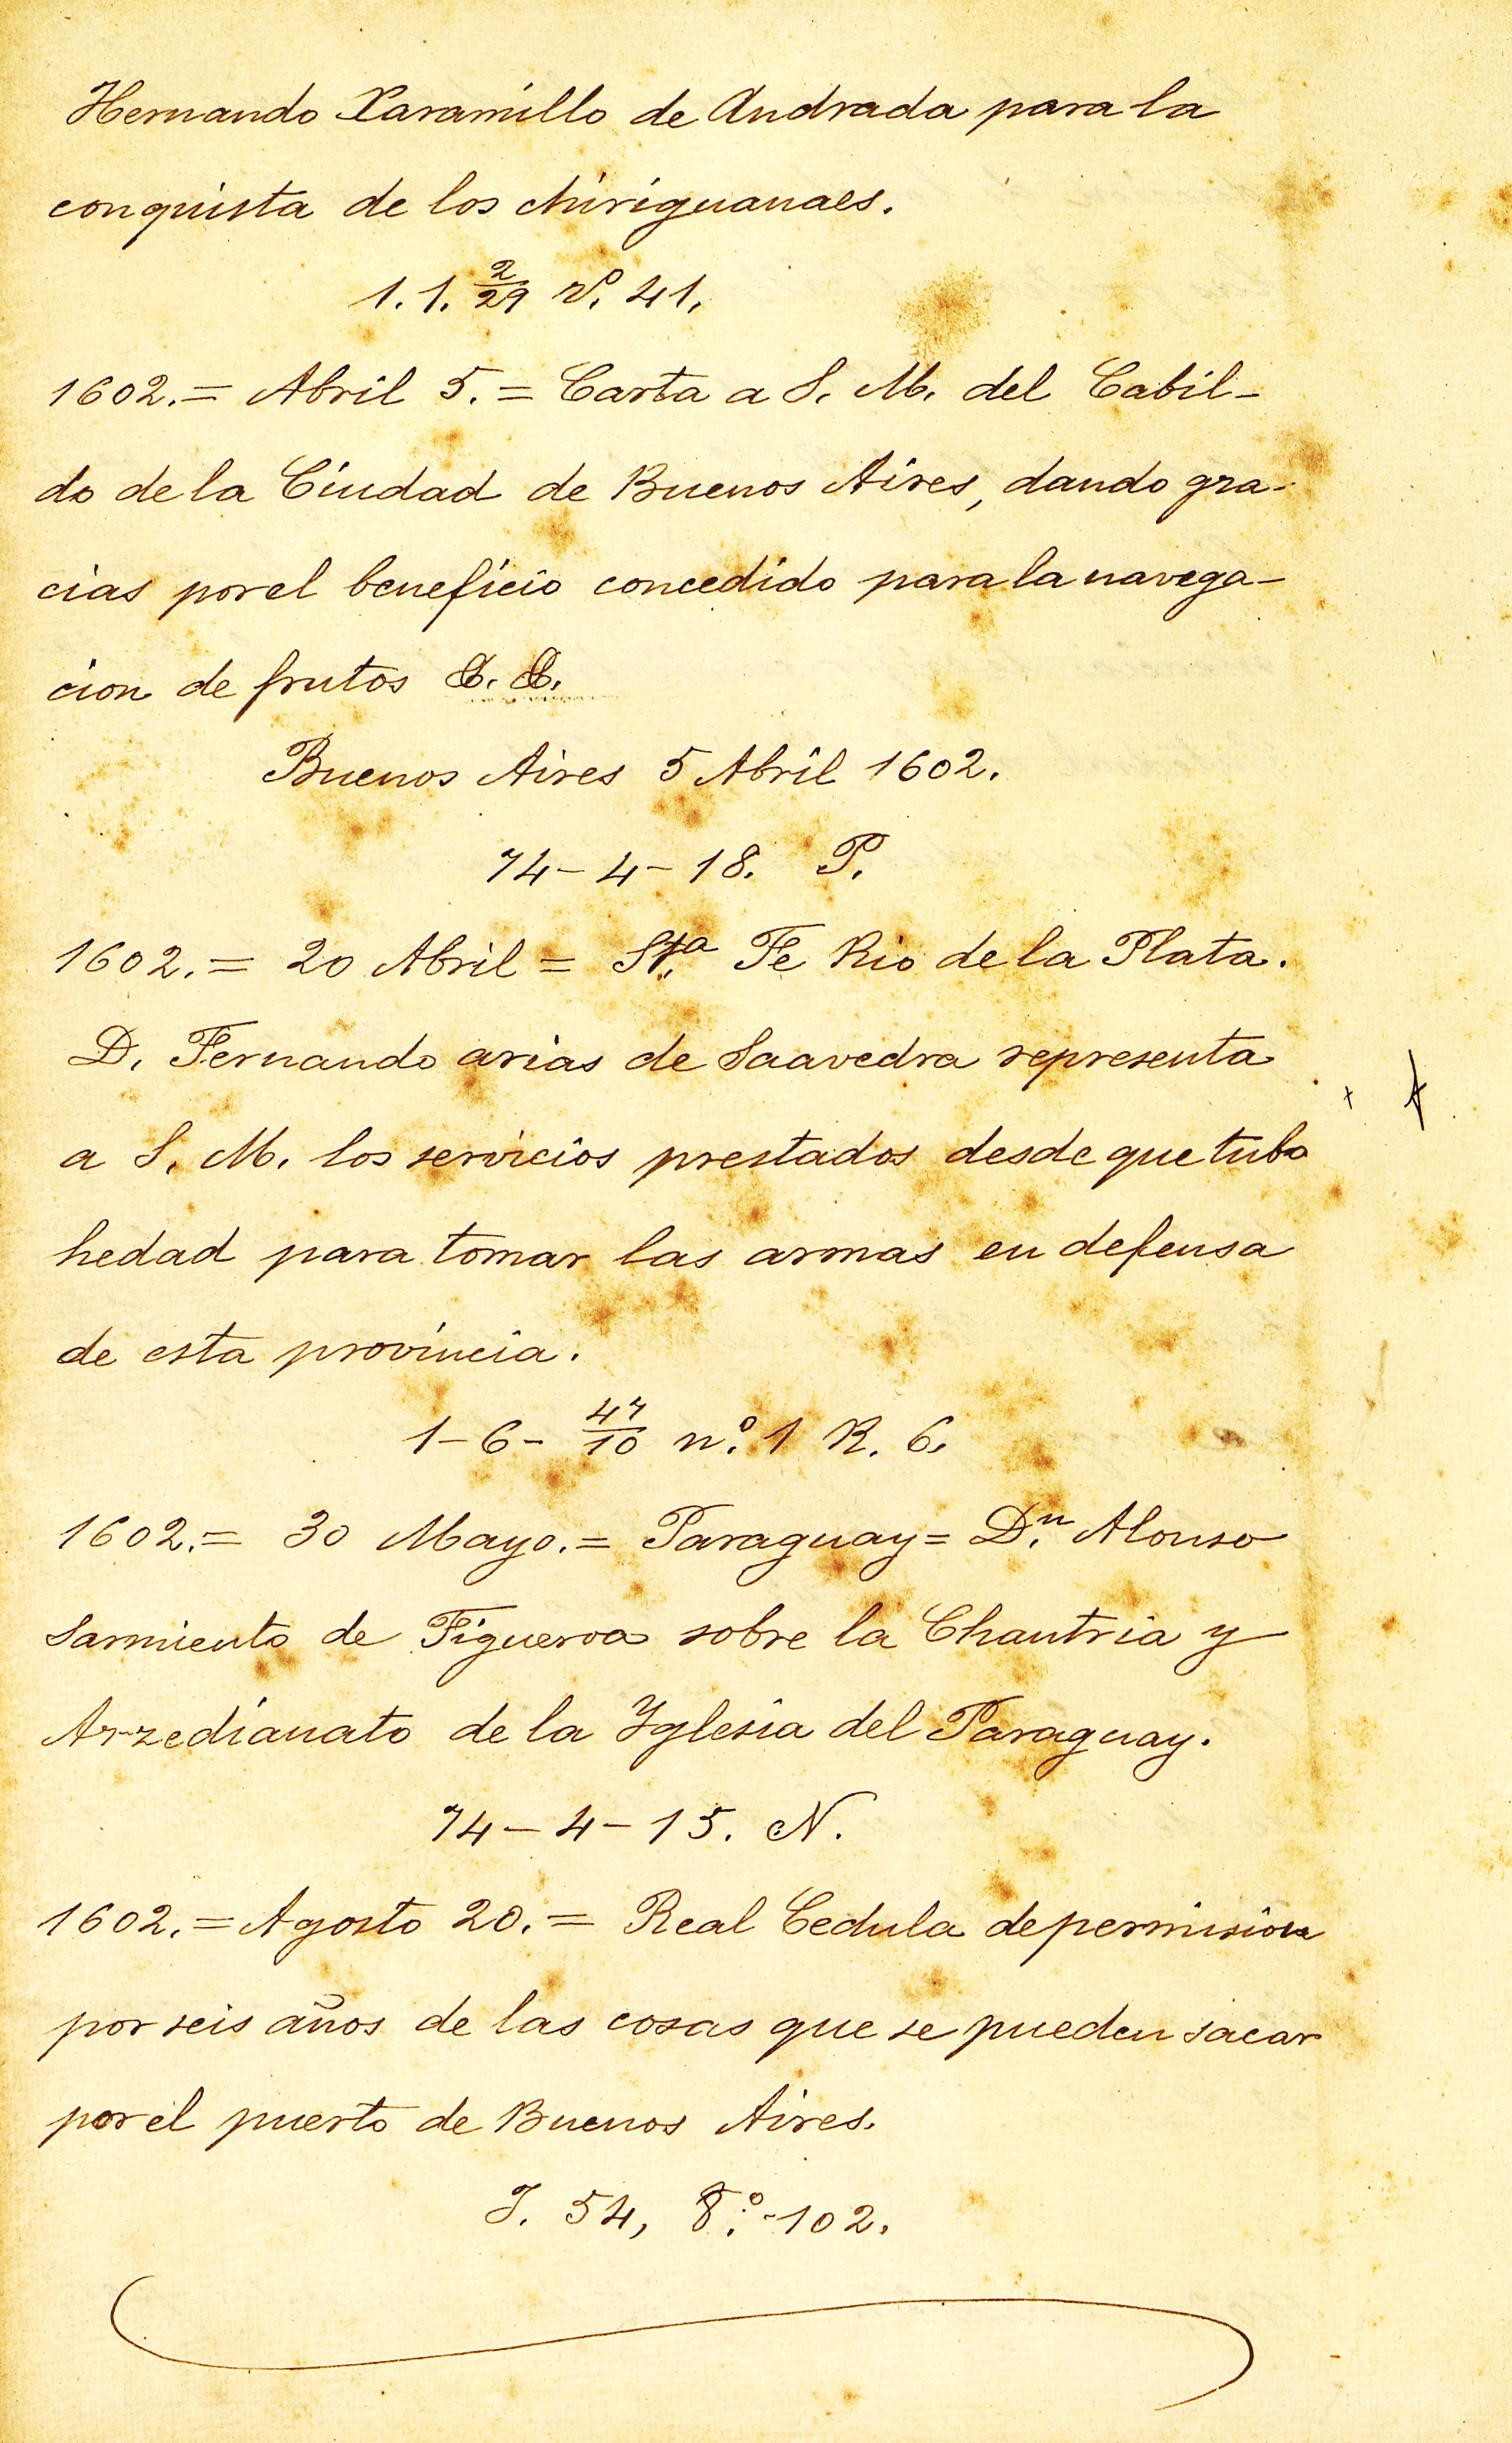 Hernando Xaramillo de Andrada para la
conquista de los chiriguanaes.
1.1. 2/29 rº. 41.
1602.= Abril 5.= Carta a S. M. del Cabil-
do de la Ciudad de Buenos Aires, dando gra-
cias por el beneficio concedido para la navega-
cion de frutos &. &.
Buenos Aires 5 Abril 1602.
74-4-18. P.
1602.= 20 Abril = Sta. Fe Rio de la Plata.
D. Fernando arias de Saavedra representa
a S. M. los servicios prestados desde que tubo
hedad para tomar las armas en defensa
de esta provincia.
1-6- 47/10 nº. 1 R. 6.
1602.= 30 Mayo.= Paraguay= Dn. Alonso
Sarmiento de Figueroa sobre la Chantria y
Arzedianato de la Yglesia del Paraguay.
74-4-15. N.
1602.= Agosto 20.= Real Cedula de permision
por seis años de las cosas que se pueden sacar
por el puerto de Buenos Aires.
J. 54, 8º.-102.